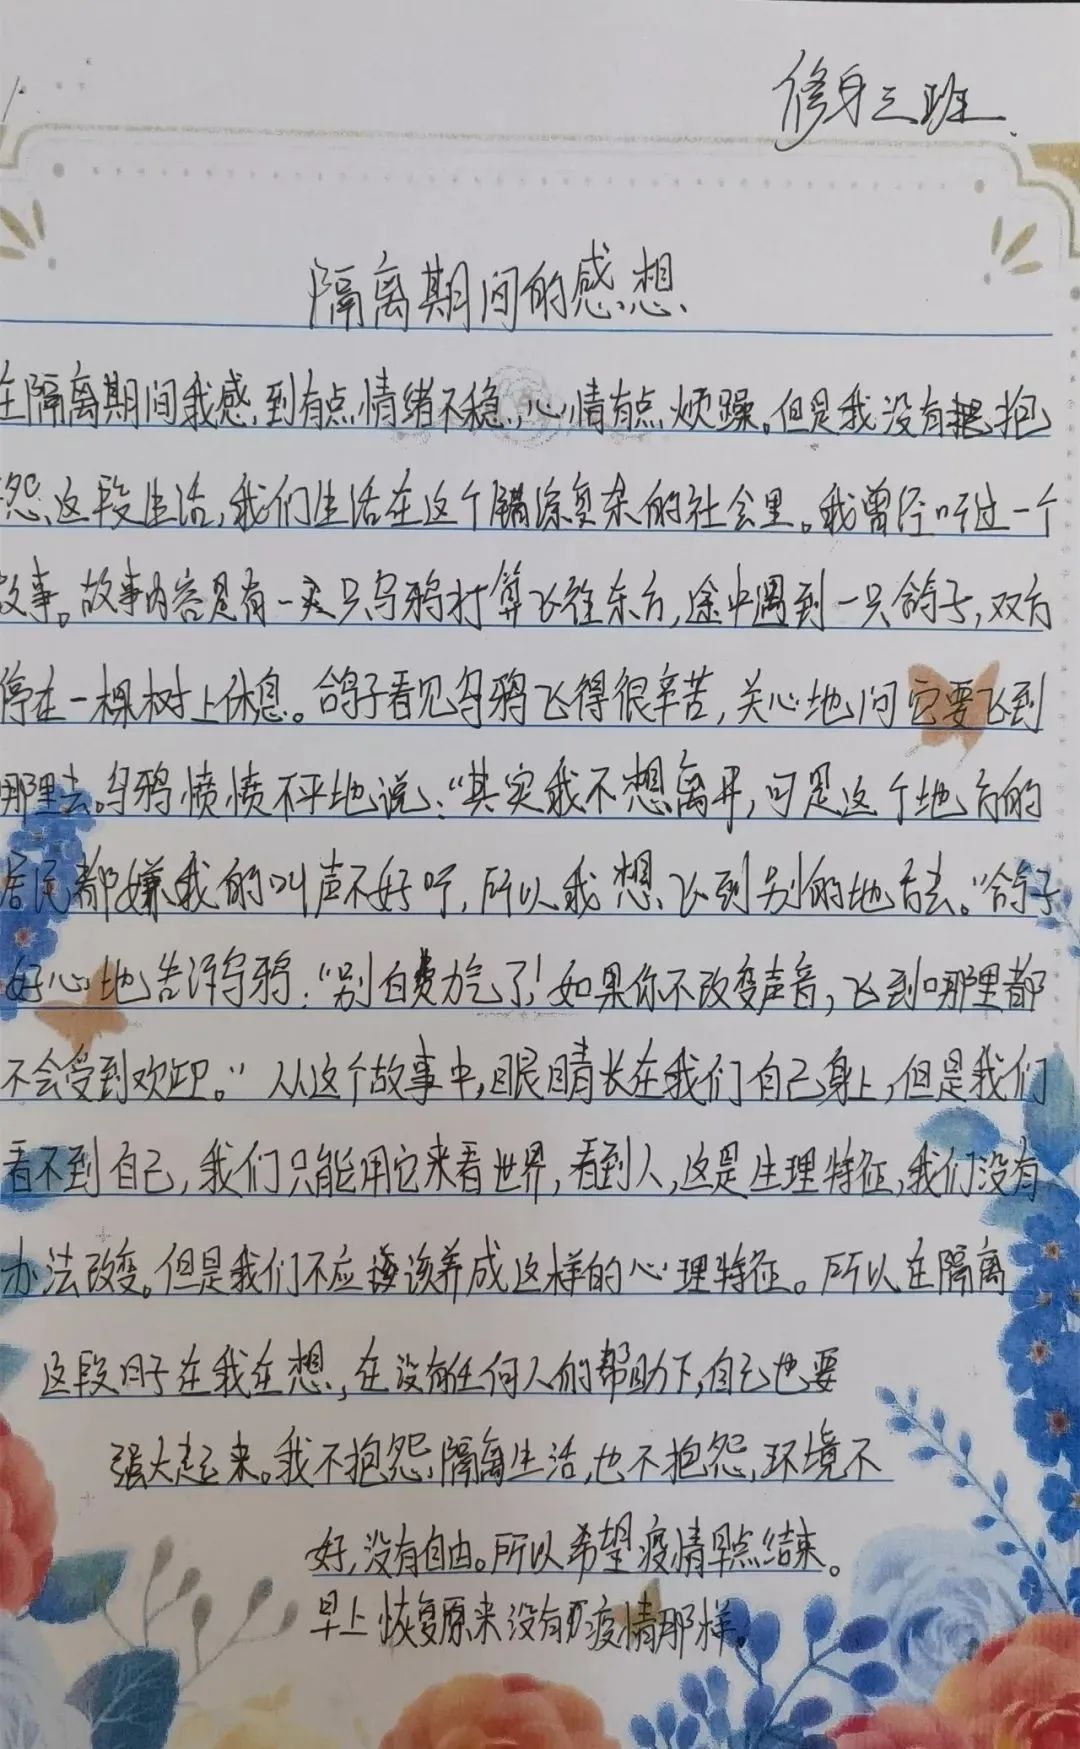 修身三班
隔离期间的感想
在隔离期间我感到有点情绪不稳,心情有点烦躁。但是我没有抱
怨这段生活,我们生活在这个错综复杂的社会里。我曾经听过一个
故事。故事内容是有一只乌鸦打算飞往东方,途中遇到一只鸽子,双方
停在一棵树上休息。鸽子看见乌鸦飞得很辛苦,关心地问它要飞到
哪里去。乌鸦愤愤不平地说:“其实我不想离开,可是这个地方的
居民都嫌我的叫声不好听,所以我想飞到别的地方去。”鸽子
好心地告诉乌鸦:“别白费力气了!如果你不改变声音,飞到哪里都
不会受到欢迎。”从这个故事中,眼睛长在我们自己身上,但是我们
看不到自己,我们只能用它来看世界,看到人,这是生理特征,我们没有
办法改变。但是我们不应该养成这样的心理特征。所以在隔离
这段日子在我在想,在没有任何人的帮助下,自己也要
强大起来。我不抱怨隔离生活,也不抱怨环境不
好,没有自由。所以希望疫情早点结束。
早上恢复原来没有疫情那样。